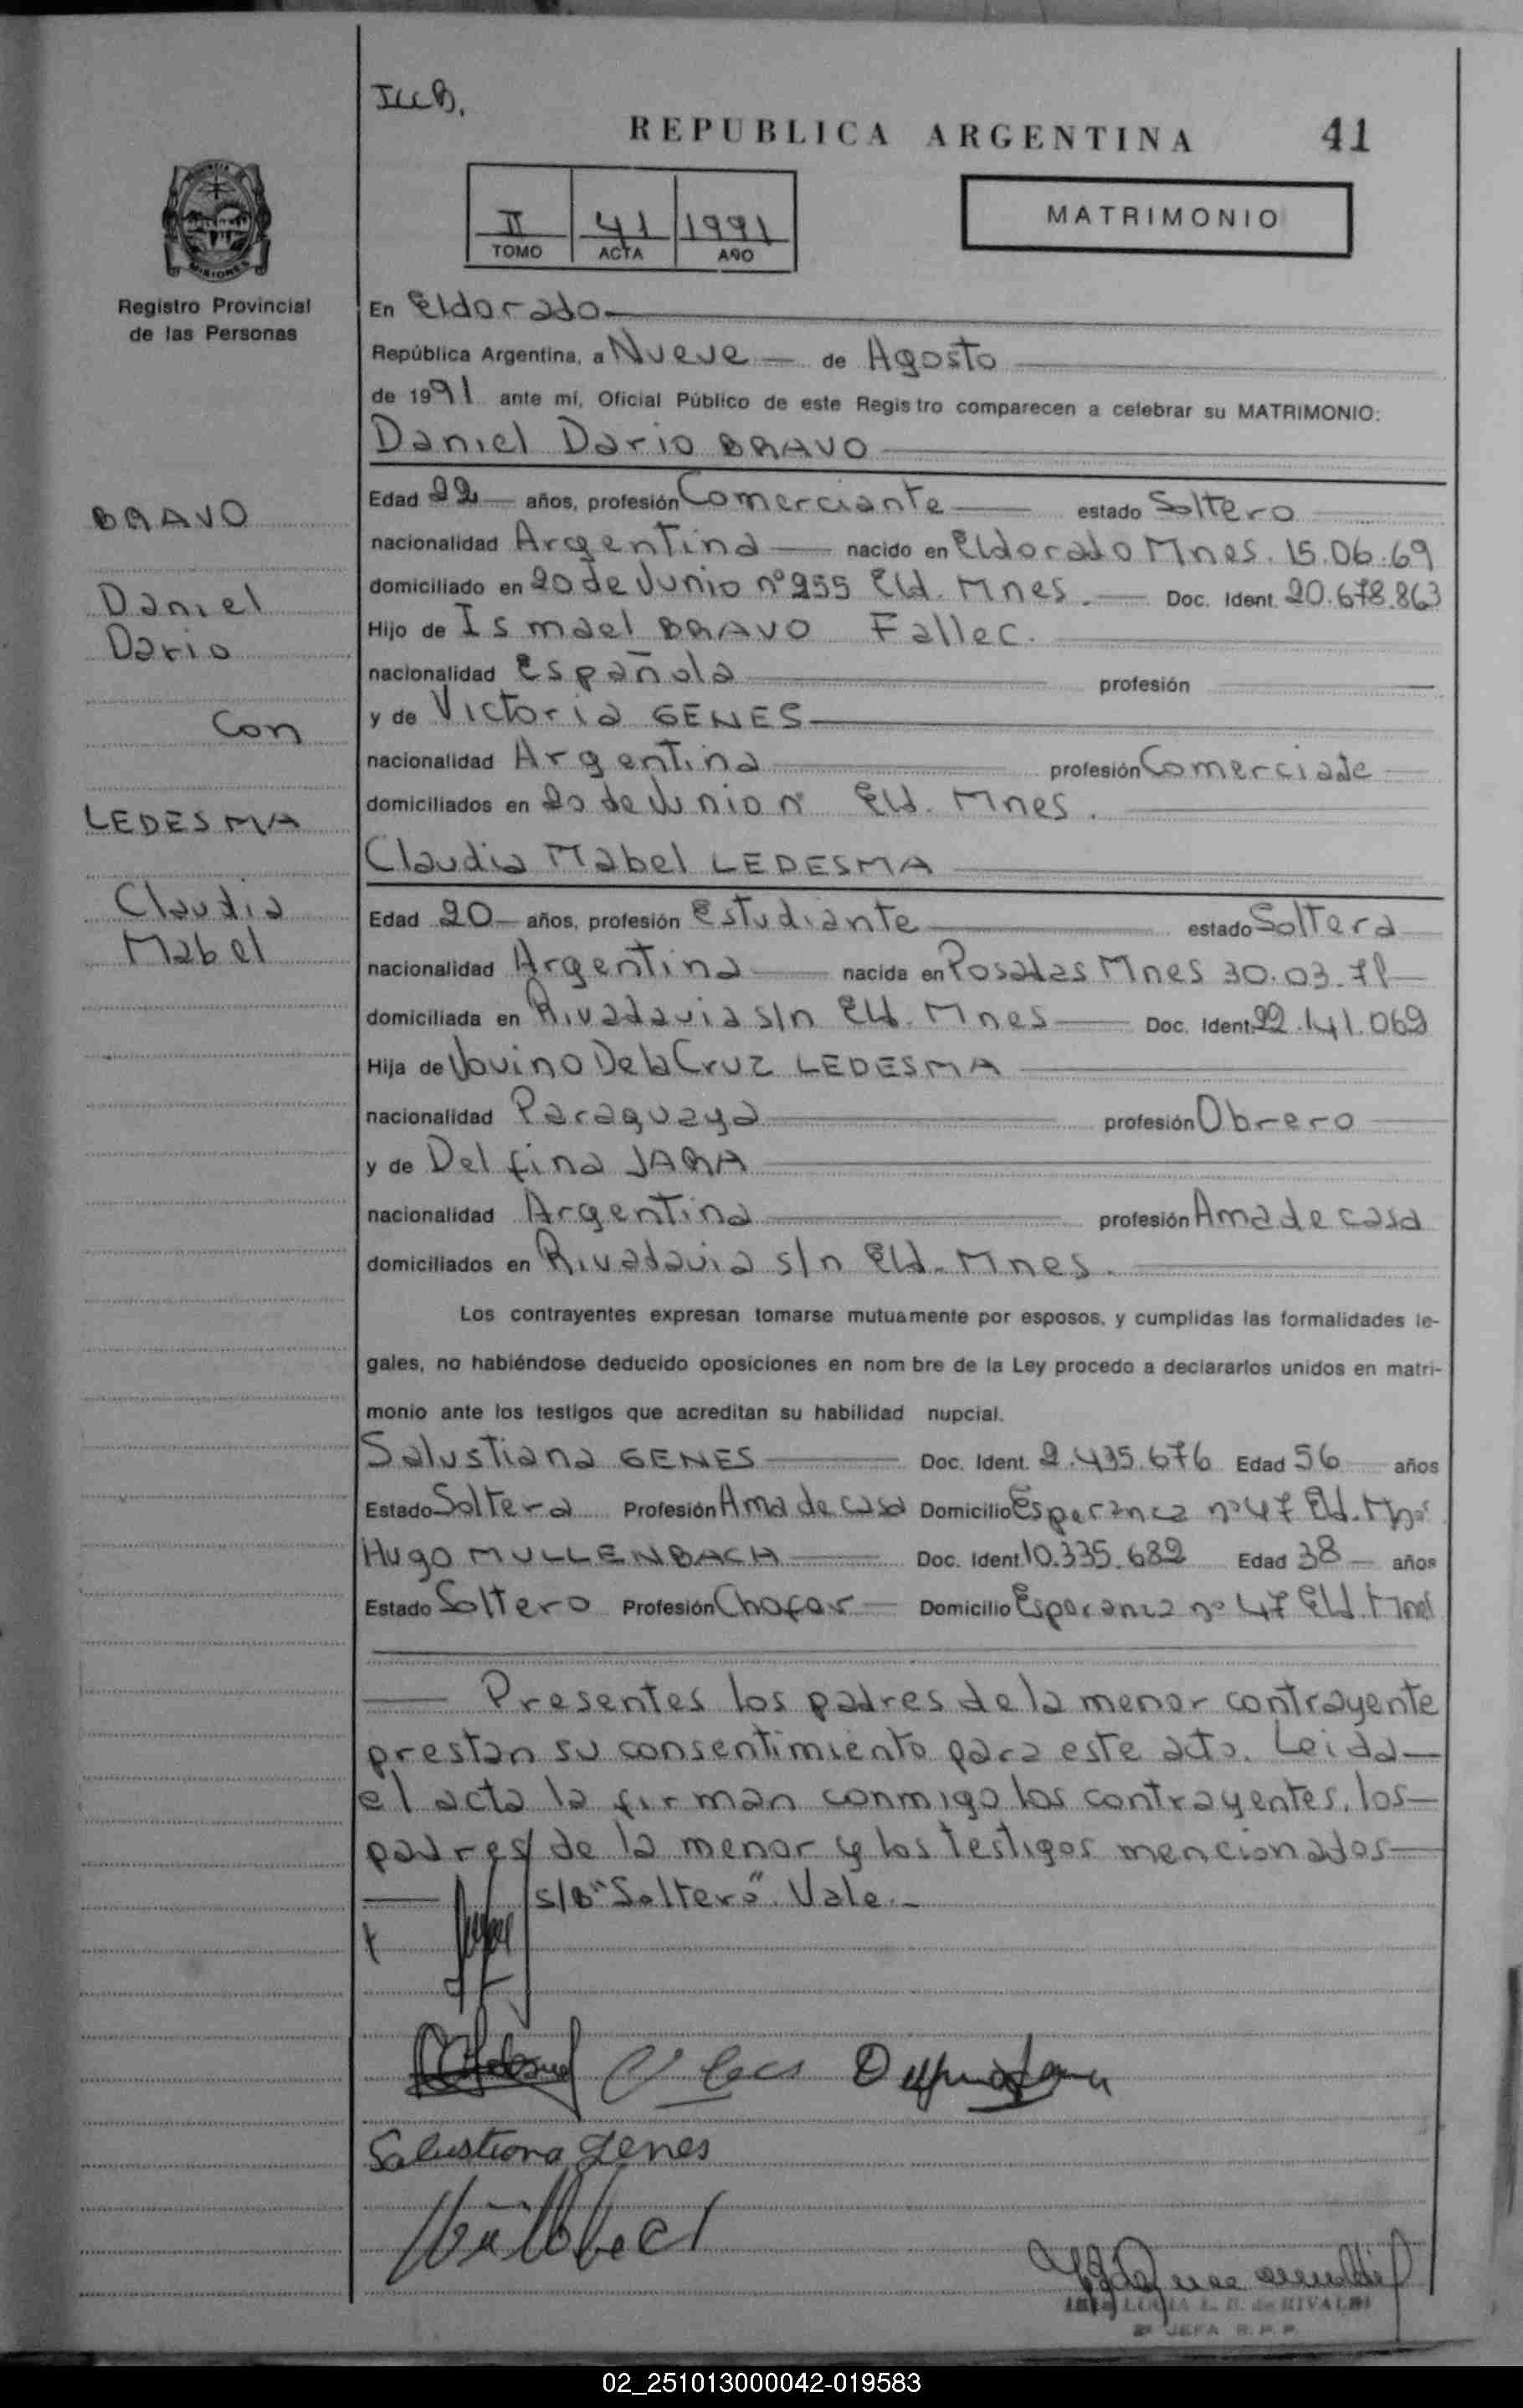 REPUBLICA ARGENTINA 41
II 41 1991
TOMO ACTA AÑO
MATRIMONIO
MISIONES
Registro Provincial
de las Personas
BRAVO
Daniel
Dario
Con
LEDESMA
Claudia
Mabel
En Eldorado
República Argentina, a Nueve de Agosto
de 1991 ante mí, Oficial Público de este Registro comparecen a celebrar su MATRIMONIO:
Daniel Dario BRAVO
Edad 22 años, profesión Comerciante estado Soltero
nacionalidad Argentina nacido en Eldorado Mnes. 15.06.69
domiciliado en 20 de Junio nº 255 Eld. Mnes. Doc. Ident. 20.678.863
Hijo de Ismael BRAVO Fallec.
nacionalidad Española profesión
y de Victoria GENES
nacionalidad Argentina profesión Comerciate
domiciliados en 20 de Junio nº Eld. Mnes.
Claudia Mabel LEDESMA
Edad 20 años, profesión Estudiante estado Soltera
nacionalidad Argentina nacida en Posadas Mnes 30.03.71
domiciliada en Rivadavia s/n Eld. Mnes Doc. Ident. 22.141.069
Hija de Jovino De la Cruz LEDESMA
nacionalidad Paraguaya profesión Obrero
y de Delfina JARA
nacionalidad Argentina profesión Ama de casa
domiciliados en Rivadavia s/n Eld. Mnes.
Los contrayentes expresan tomarse mutuamente por esposos, y cumplidas las formalidades le-
gales, no habiéndose deducido oposiciones en nom bre de la Ley procedo a declararlos unidos en matri-
monio ante los testigos que acreditan su habilidad nupcial.
Salustiana GENES Doc. Ident. 2.435.676 Edad 56 años
Estado Soltera Profesión Ama de casa Domicilio Esperanza nº 47 Eld. Mnes
Hugo MULLENBACH Doc. Ident. 10.335.682 Edad 38 años
Estado Soltero Profesión Chofer Domicilio Esperanza nº 47 Eld. Mnes
Presentes los padres de la menor contrayente
prestan su consentimiento para este acto. Leida
el acta la firman conmigo los contrayentes, los
padres de la menor y los testigos mencionados
s/b "Soltero". Vale.
Salustiana Genes
LUCIA L. B. de RIVALDI
JEFA R. P. P.
02_251013000042-019583